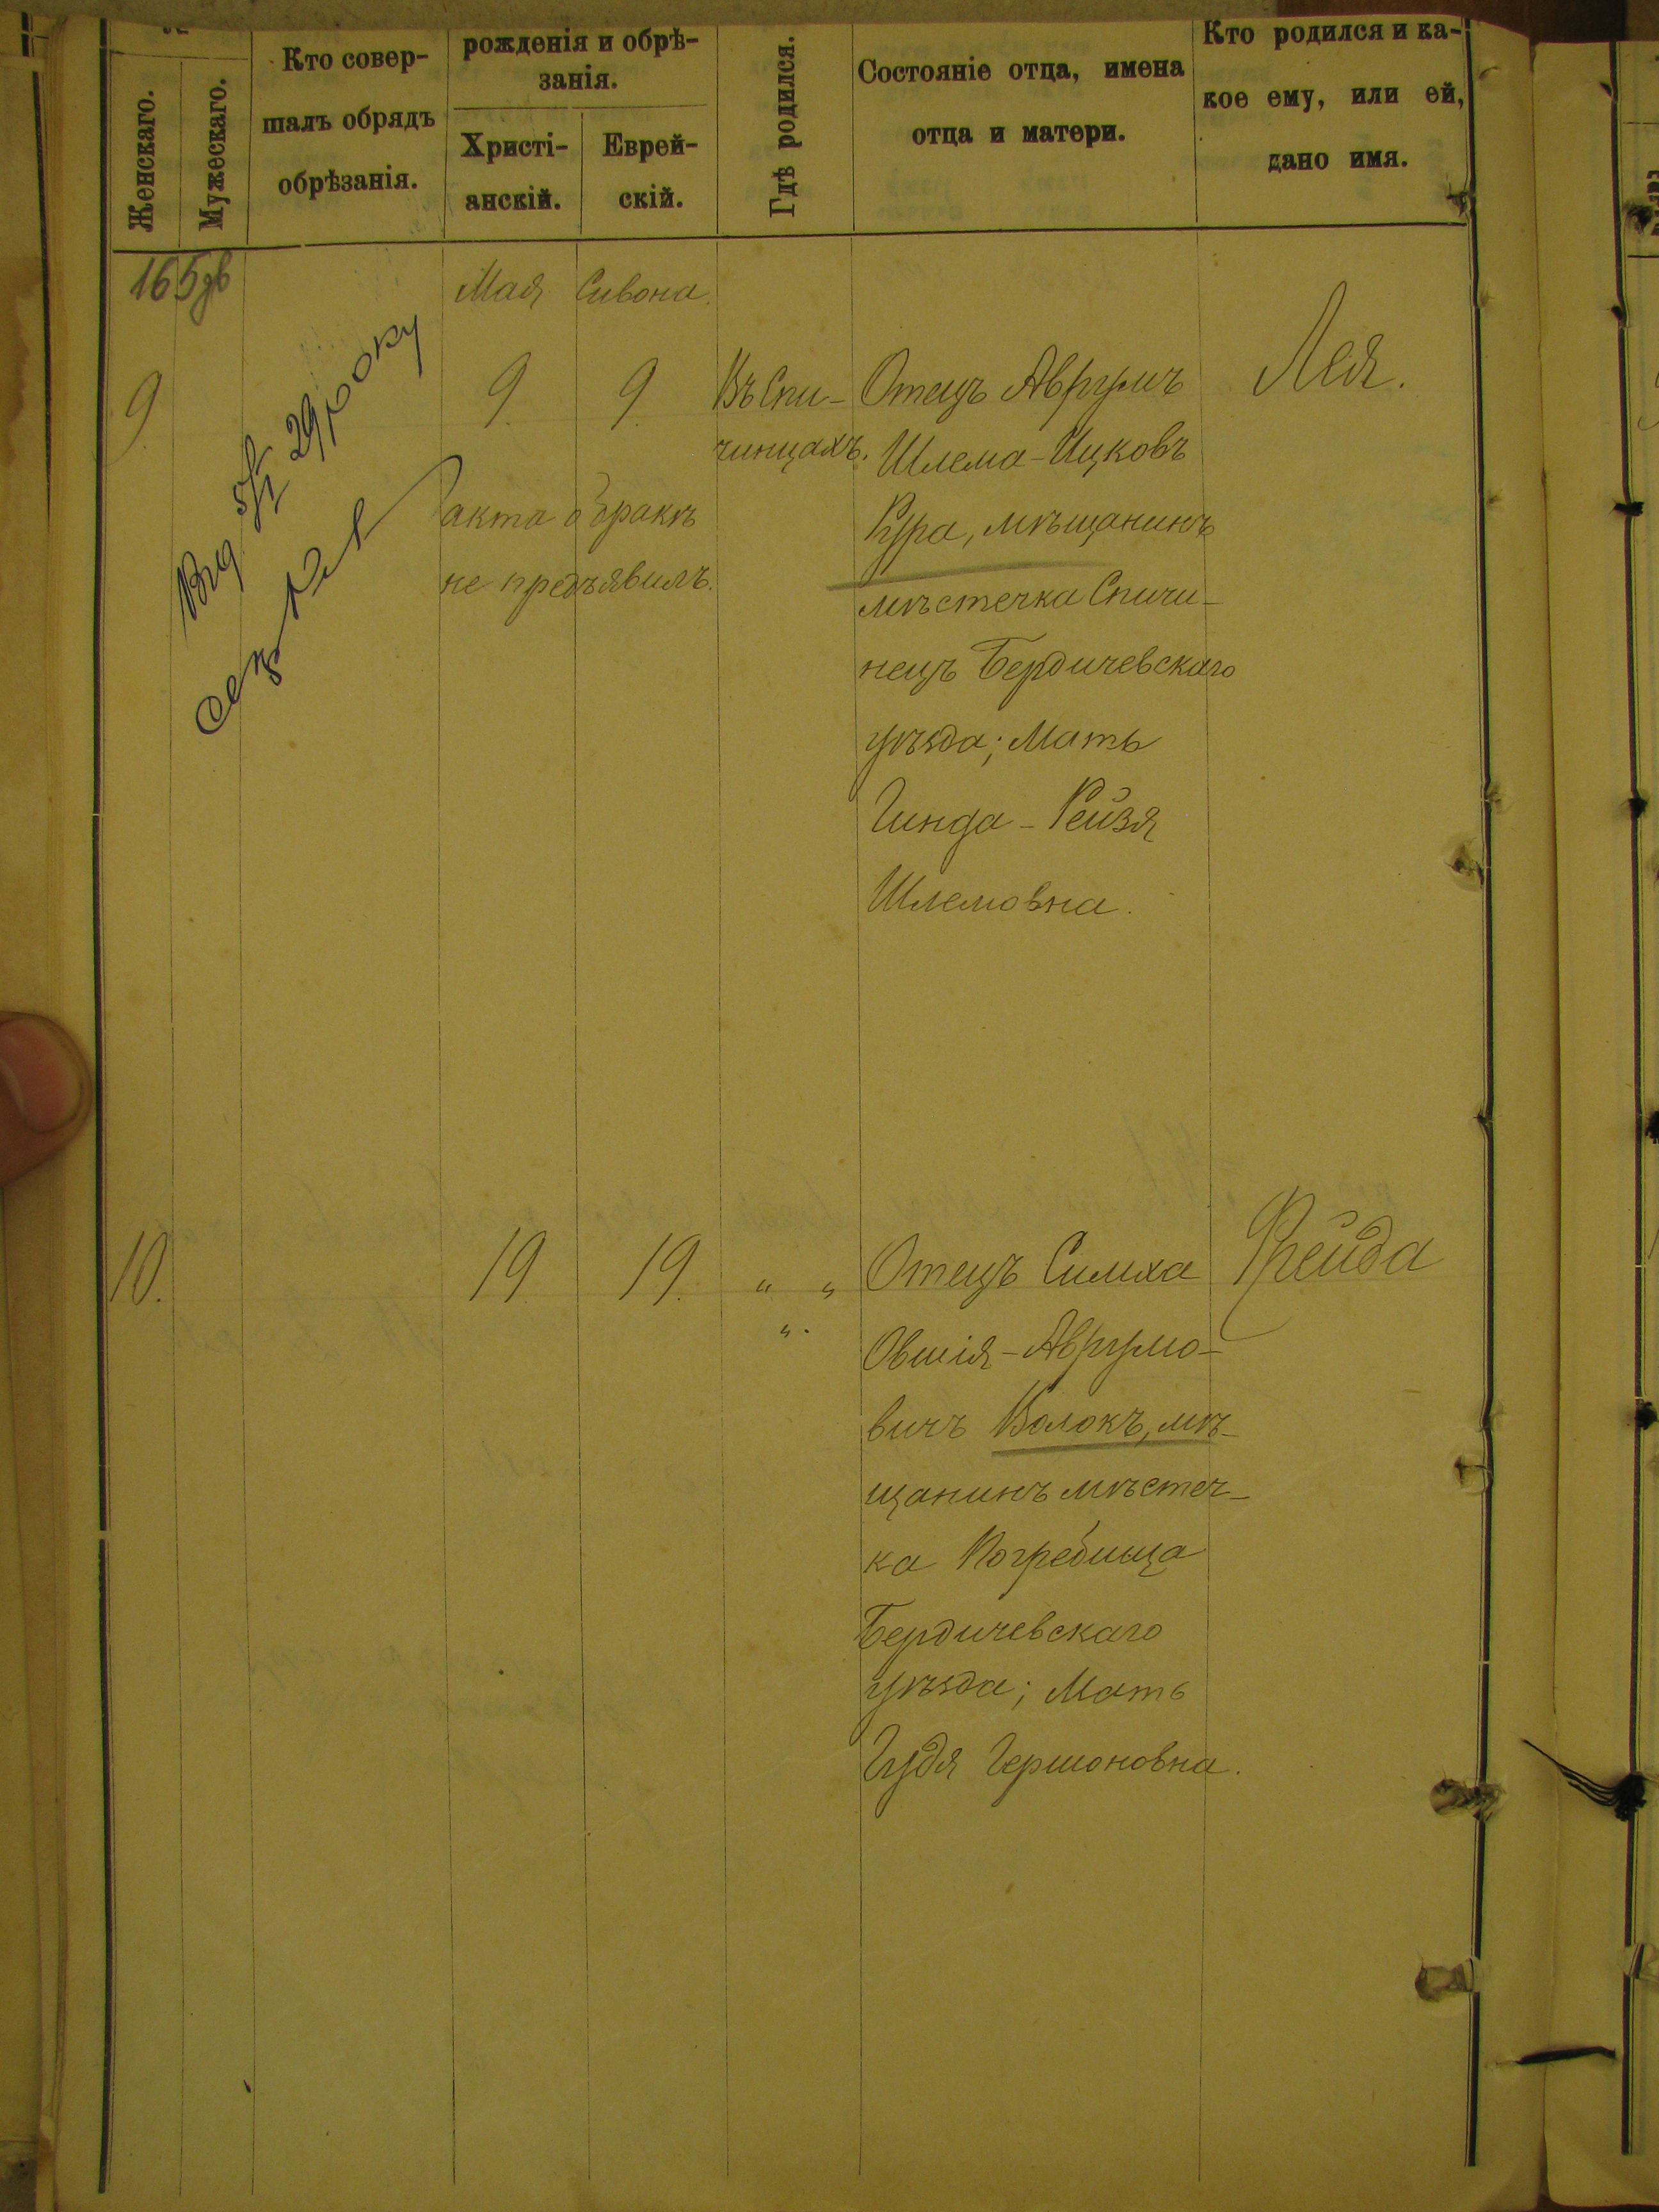 Женскаго.
Мужескаго.
Кто совер-
шалъ обрядъ
обрѣзанія.
рожденія и обрѣ-
занія.
Христі-
анскій.
Еврей-
скій.
Гдѣ родился.
Состояніе отца, имена
отца и матери.
Кто родился и ка-
кое ему, или ей,
дано имя.
165дв
Мая Сивона.
9
Вид. 5/VI 29 року
9. 9.
акта о бракѣ
не предъявилъ.
Въ Спи-
чинцахъ.
Отецъ Аврумъ
Шлема-Ицковъ
Кура, мѣщанинъ
мѣстечка Спичи-
нецъ Бердичевскаго
уѣзда; Мать
Гинда-Рейзя
Шлемовна.
Лея.
10.
19. 19.
" "
".
Отецъ Симха
Овшія-Аврумо-
вичъ Волокъ, мѣ-
щанинъ мѣстеч-
ка Погребища
Бердичевскаго
уѣзда; Мать
Гудя Гершоновна.
Фрейда